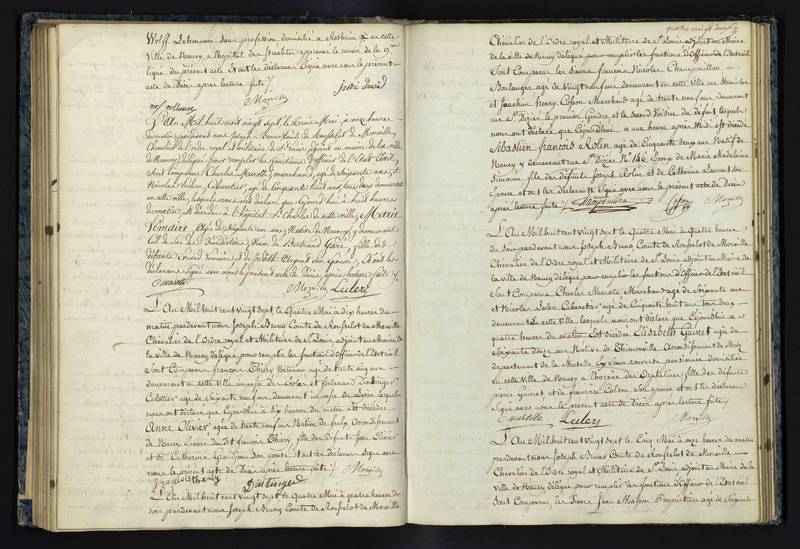 Wolff Lehmann, sans profession domicilié à Rosheim et en cette
ville de Nancy, à l'hopital des Israelites approuvé le renvoi de la 9me
ligne du présent acte Et ont les déclarans signé avec nous le présent
acte de Décès après lecture faite /.
Morville
L'An Mil huit cent vingt sept, le trois Mai, à onze heures
du matin, pardevant nous Joseph Brunq Comte de Rousselot de Morville,
Chevalier de l'ordre royal et militaire de St Louis, adjoint au maire de la
ville de Nancy, délégué pour remplir les fonctions d'officier de l'Etat Civil
Sont Comparus Charles Mariotte, marchand, agé de soixante ans, et
Nicolas Leclerc, Cabaretier, agé de Cinquante huit ans, tous deux demeurant
en cette ville, lesquels nous ont déclaré que Cejourd'hui à huit heures
du matin, est décédée à l'hopital St Charles de cette ville, Marie
Lemaire, agée de soixante six ans, Native de Nancy, y demeurant
Veuve de Bertrand Gare, fille des
défunts
déclarans signé avec nous le présent acte de Décès, après lecture faite /.
C mariotte Morville Leclerc
L'An Mil huit cent vingt sept, le Quatre Mai à dix heures du
matin pardevant nous Joseph Brunq Comte de Rousselot de Morville
Chevalier de l'Ordre royal et Militaire de St Louis adjoint au Maire de
la ville de Nancy délégué pour remplir les fonctions d'officier de l'état civil
Sont Comparus françois Thiery Voiturier agé de trente cinq ans
demeurant en cette ville et ferdinand Dintinger
Cabaretier agé de soixante neuf ans demeurant lesquels
nous ont déclaré que Cejourd'hui à six heures du matin est décédée
Anne Olivier agée de trente ans Native de arrondissement
de Nancy Epouse du dit françois Thiery fille des défunts Jean Olivier
et de Catherine son épouse Et ont les déclarans signé avec
nous le présent acte de Décès après lecture faite /. Morville
françois thiery Dintinger
L'An Mil huit cent vingt sept le Quatre Mai à quatre heures du
soir pardevant nous Joseph Brunq Comte de Rousselot de Morville
quatre vingt
Chevalier de l'Ordre royal et Militaire de St Louis adjoint au Maire
de la ville de Nancy délégué pour remplir les fonctions d'officier de l'état civil
Sont Comparus les Sieurs francois Nicolas
Boulanger agé de vingt neuf ans demeurant en cette ville
et Joachim henry Marchand agé de trente neuf ans demeurant
rue St Dizier le premier Gendre et le second Voisin du défunt lesquels
nous ont déclaré que Cejourd'hui a une heure après Midi est décédé
Sébastien françois Rolin agé de Cinquante deux ans Natif de
Nancy y demeurant rue St Dizier No 146, époux de Marie Madelaine
Simonin fils des défunts Joseph Rolin et de Catherine Laurent son
Epouse et ont les déclarans signé avec nous le présent acte de Décès
après lecture faite /. Morville
L'An Mil huit cent vingt sept le Quatre Mai à quatre heures
du soir pardevant nous Joseph Brunq Comte de Rousselot de Morville
Chevalier de l'Ordre royal et Militaire de St Louis adjoint au Maire de
la ville de Nancy délégué pour remplir les fonctions d'officier de l'état civil
Sont Comparus Charles Mariotte Marchand agé de soixante ans
et Nicolas Leclerc Cabaretier agé de Cinquante huit ans tous deux
demeurant en cette ville, lesquels nous ont déclaré que Cejourd'hui à
quatre heures du matin Est décédée Elisabeth Guinet agée de
soixante douze ans Native de Arrondissement de Metz
département de la Moselle Ex Sœur converse pensionnée domiciliée
en cette ville de Nancy à l'hospice des Orphelins, fille des défunts
pierre Guinet et de francoise Colson son épouse et ont les déclarans
signé avec nous le présent acte de Décès après lecture faite /.
C mariotte Leclerc Morville
L'An Mil huit cent vingt sept le Cinq Mai à onze heures du matin
pardevant nous Joseph Brunq Comte de Rousselot de Morville
Chevalier de l'Ordre royal et Militaire de St Louis adjoint au Maire de la
ville de Nancy délégué pour remplir les fonctions d'officier de l'état civil
Sont Comparus les Sieurs Jean Masson Propriétaire agé de soixante